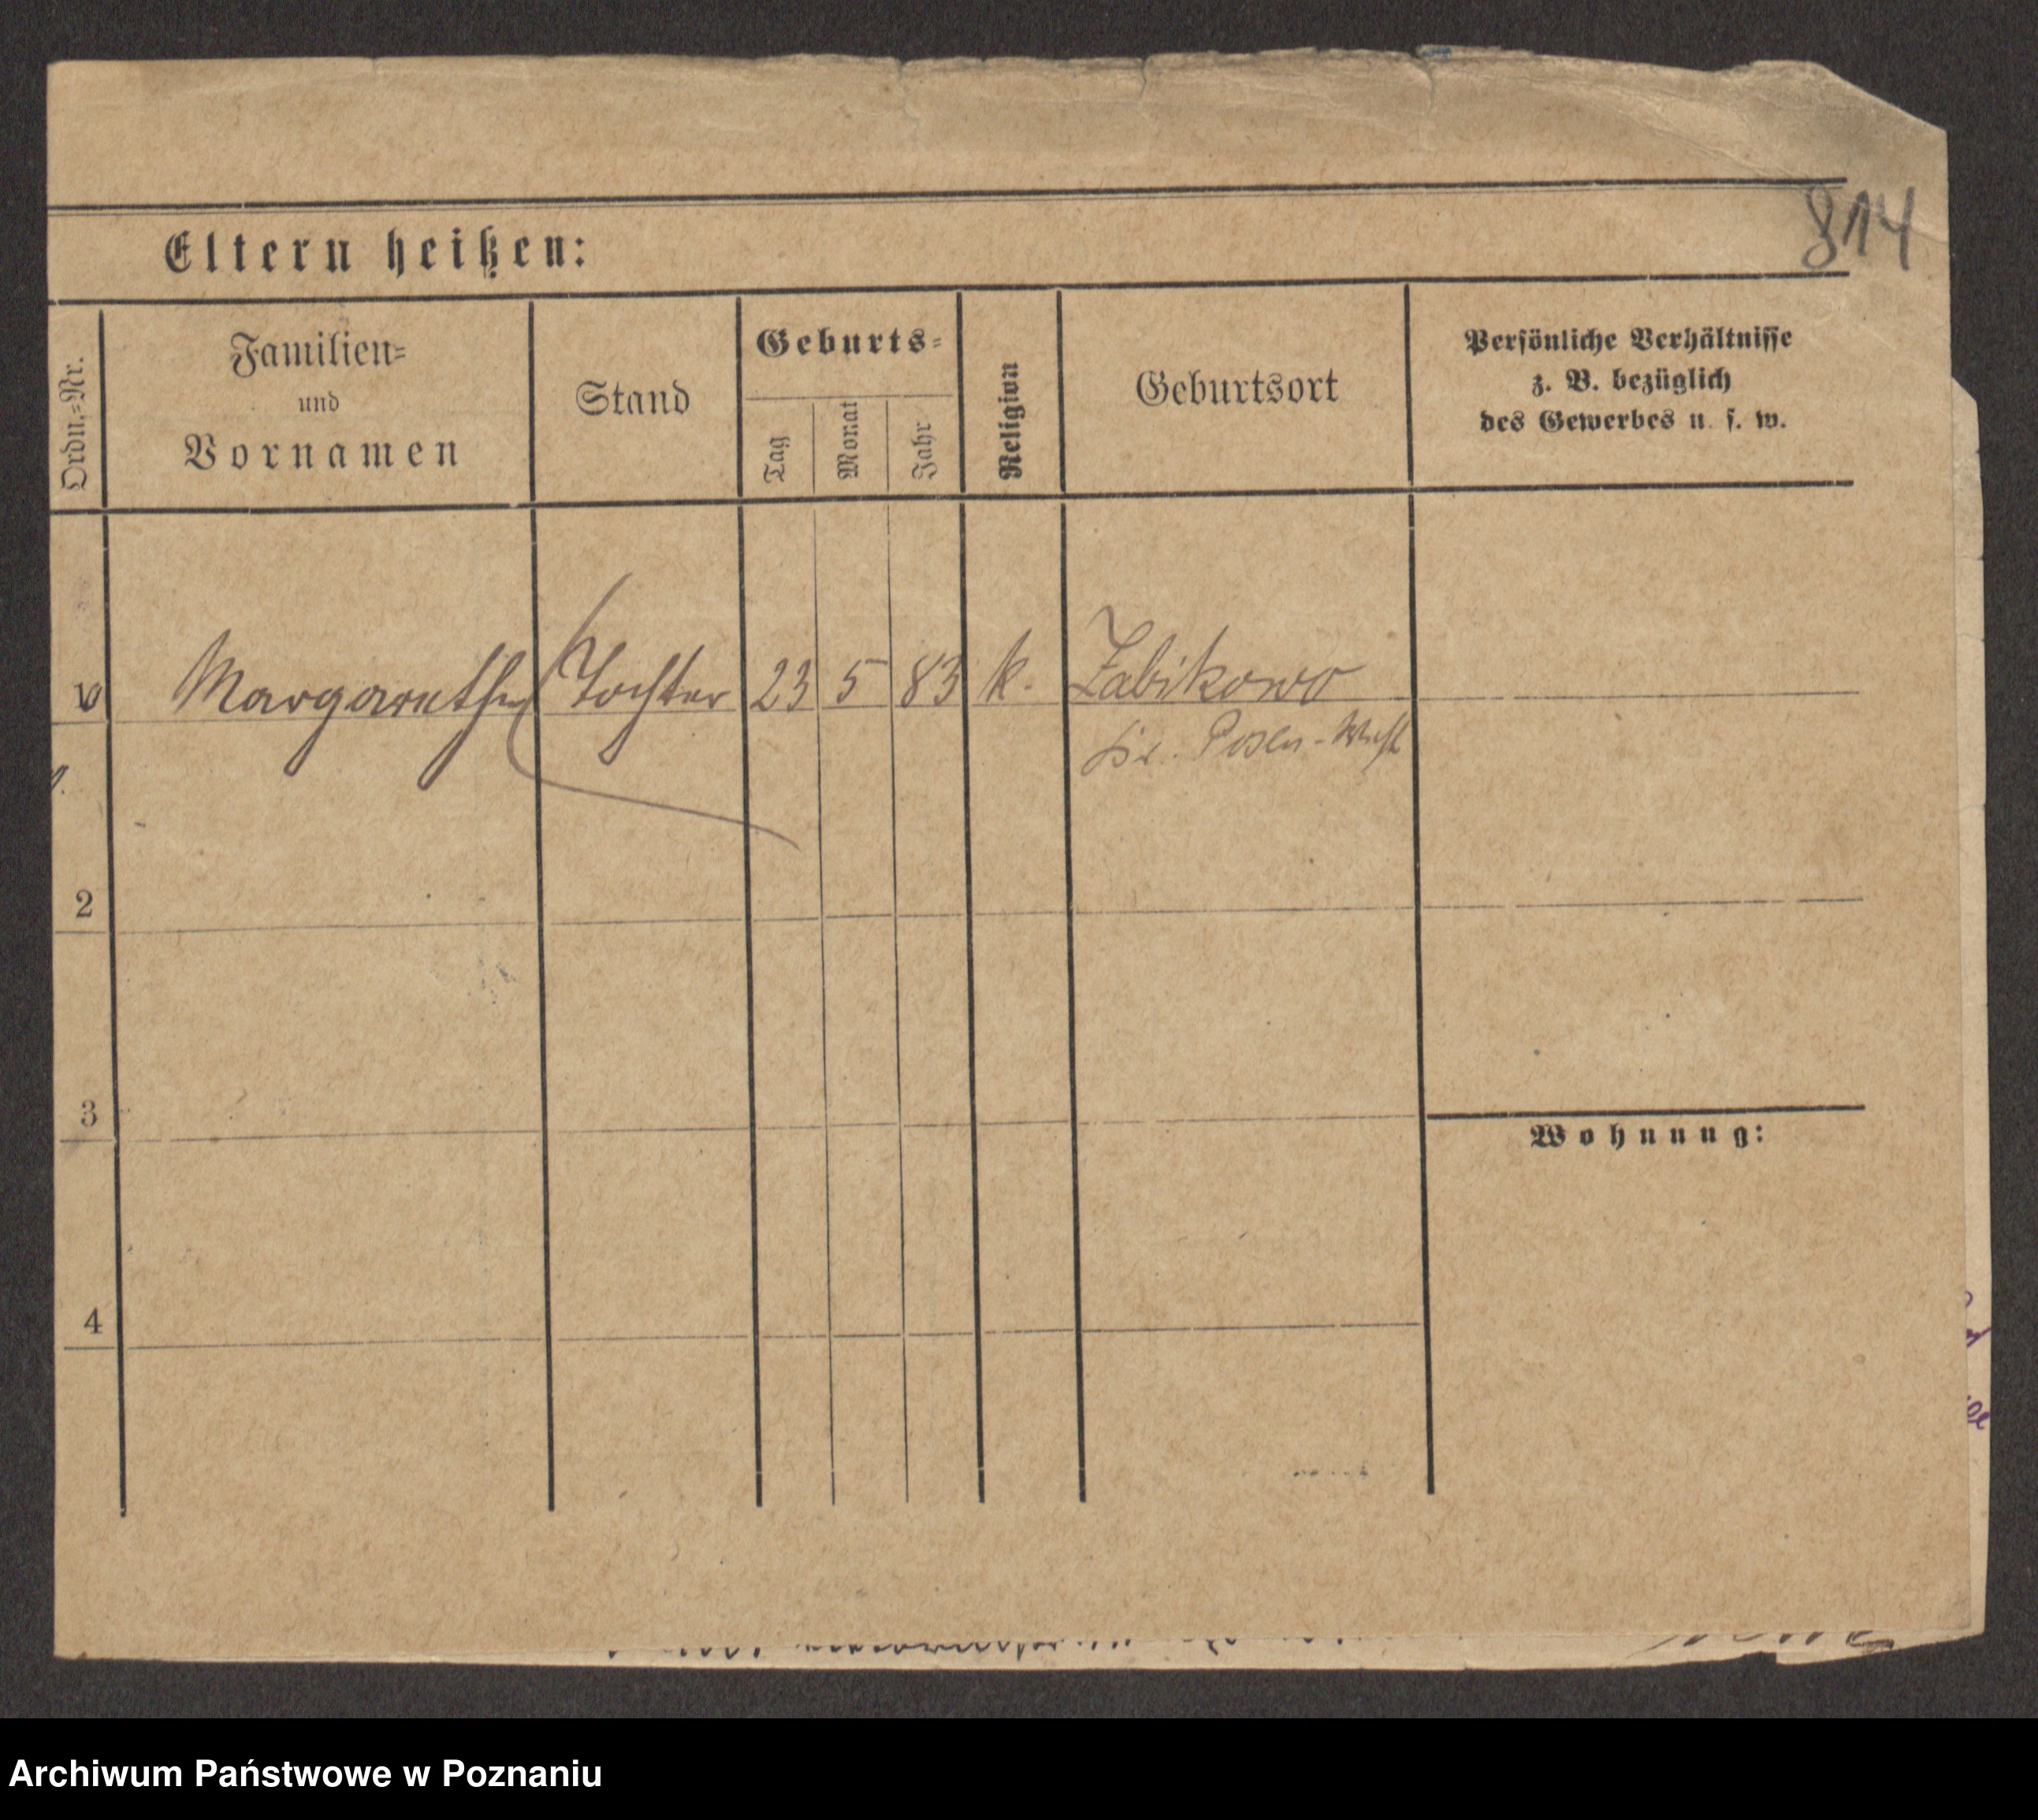 814
Eltern heißen:
Ordn.-Nr.
Familien-
und
Vornamen
Stand
Geburts-
Tag
Monat
Jahr
Religion
Geburtsort
Persönliche Verhältnisse
z. B. bezüglich
des Gewerbes u. s. w.
10 Margarethe Tochter 23 5 83 k. Zabikowo
Kr. Posen-West
2
3
Wohnung:
4
Archiwum Państwowe w Poznaniu